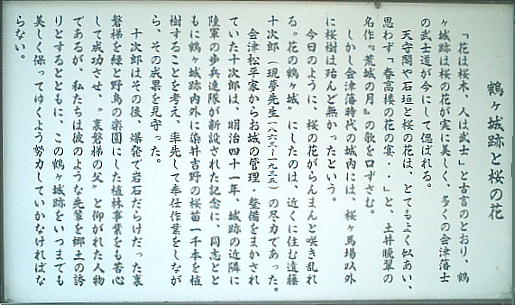 鶴ヶ城跡と桜の花
「花は桜木、人は武士」と古言のとおり、鶴
ヶ城跡は桜の花が実に美しく、多くの会津藩士
の武士道が今にして偲ばれる。
天守閣や石垣と桜の花は、とてもよく似あい、
思わず「春高楼の花の宴・・」と、土井晩翠の
名作『荒城の月』の歌を口ずさむ。
しかし会津藩時代の城内には、桜ヶ馬場以外
に桜樹は殆んど無かったという。
今日のように、桜の花がらんまんと咲き乱れ
る〝花の鶴ヶ城〟にしたのは、近くに住む遠藤
十次郎(現夢先生一八六三-一九三五)の尽力であった。
会津松平家からお城の管理・整備をまかされ
ていた十次郎は、明治四十一年、城跡の近隣に
陸軍の歩兵連隊が新設された記念に、同志とと
もに鶴ヶ城跡内外に染井吉野の桜苗一千本を植
樹することを考え、率先して奉仕作業をしなが
ら、その成果を見守った。
十次郎はその後、爆発で岩石だらけだった裏
磐梯を緑と野鳥の楽園にした植林事業をも苦心
して成功させ、〝裏磐梯の父〟と仰がれた人物
であるが、私たちは彼のような先輩を郷土の誇
りとするとともに、この鶴ヶ城跡をいつまでも
美しく保ってゆくよう努力していかなければな
らない。